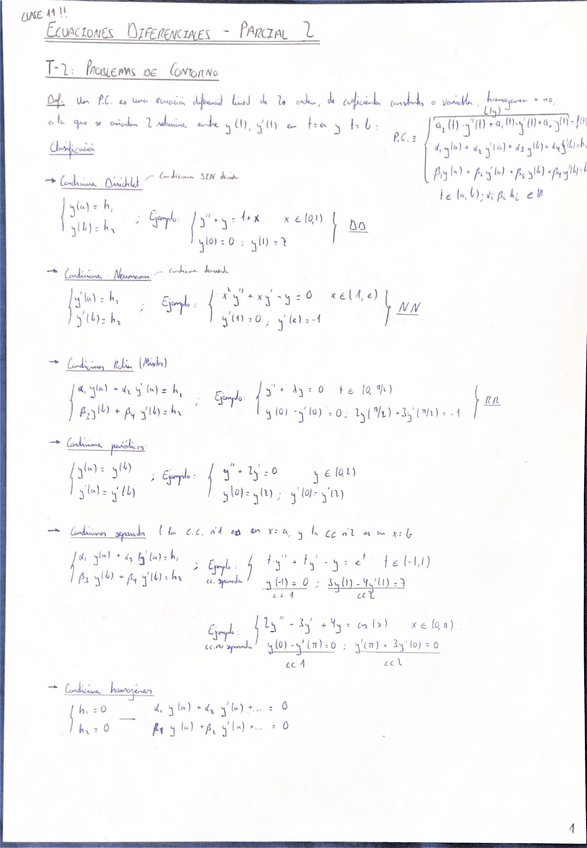 CLASE 11!!
ECUACIONES DIFERENCIALES - PARCIAL 2
T-2: PROBLEMAS DE CONTORNO
Def. Un P.C. es una ecuación diferencial lineal de 2o orden, de coeficientes constantes o variables, homogénea o no,
a la que se 2 entre y(t), y'(t) en t=a y t=b:
P.C. ≡ { L(y)
a₂(t)·y''(t) + a₁(t)·y'(t) + a₀·y(t) = f(t)
α₁y(a) + α₂y'(a) + α₃y(b) + α₄y'(b) = h₁
β₁y(a) + β₂y'(a) + β₃y(b) + β₄y'(b) = h
t ∈ (a,b); αi βi hi ∈ ℝ
Clasificación
→ Condiciones Dirichlet - Condiciones SIN derivada
{ y(a) = h₁ y(b) = h₂ ; Ejemplo: { y'' + y = 1+x x ∈ (0,1) y(0) = 0 ; y(1) = 7 } DD
→ Condiciones Neumann -
{ y'(a) = h₁ y'(b) = h₂ ; Ejemplo: { x²y'' + xy' - y = 0 x ∈ (1, e) y'(1) = 0 ; y'(e) = -1 } NN
→ Condiciones Robin (Mixtas)
{ α₁ y(a) + α₂ y'(a) = h₁ β₃ y(b) + β₄ y'(b) = h₂ ; Ejemplo: { y'' + λy = 0 t ∈ (0, π/2) y(0) - y'(0) = 0 ; 2y(π/2) + 3y'(π/2) = -1 } RR
→ Condiciones periódicas
{ y(a) = y(b) y'(a) = y'(b) ; Ejemplo: { y'' + 2y' = 0 y ∈ (0,2) y(0) = y(2) ; y'(0) = y'(2)
→ Condiciones separadas (la c.c. nº1 es en x=a, y la cc nº2 es en x=b
{ α₁ y(a) + α₂ y'(a) = h₁ β₃ y(b) + β₄ y'(b) = h₂ ; Ejemplo: cc. separadas { t·y'' + t y' - y = eᵗ t ∈ (-1,1) y(-1) = 0 ; 3y(1) - 4y'(1) = 7
cc 1 cc 2
Ejemplo: cc. no separadas { 2y'' - 3y' + 4y = cos(x) x ∈ (0,π)
y(0) - y'(π) = 0 ; y'(π) + 3y'(0) = 0
cc 1 cc 2
→ Condiciones homogéneas
{ h₁ = 0 h₂ = 0 — α₁ y(a) + α₂ y'(a) + ... = 0
β₁ y(a) + β₂ y'(a) + ... = 0
1